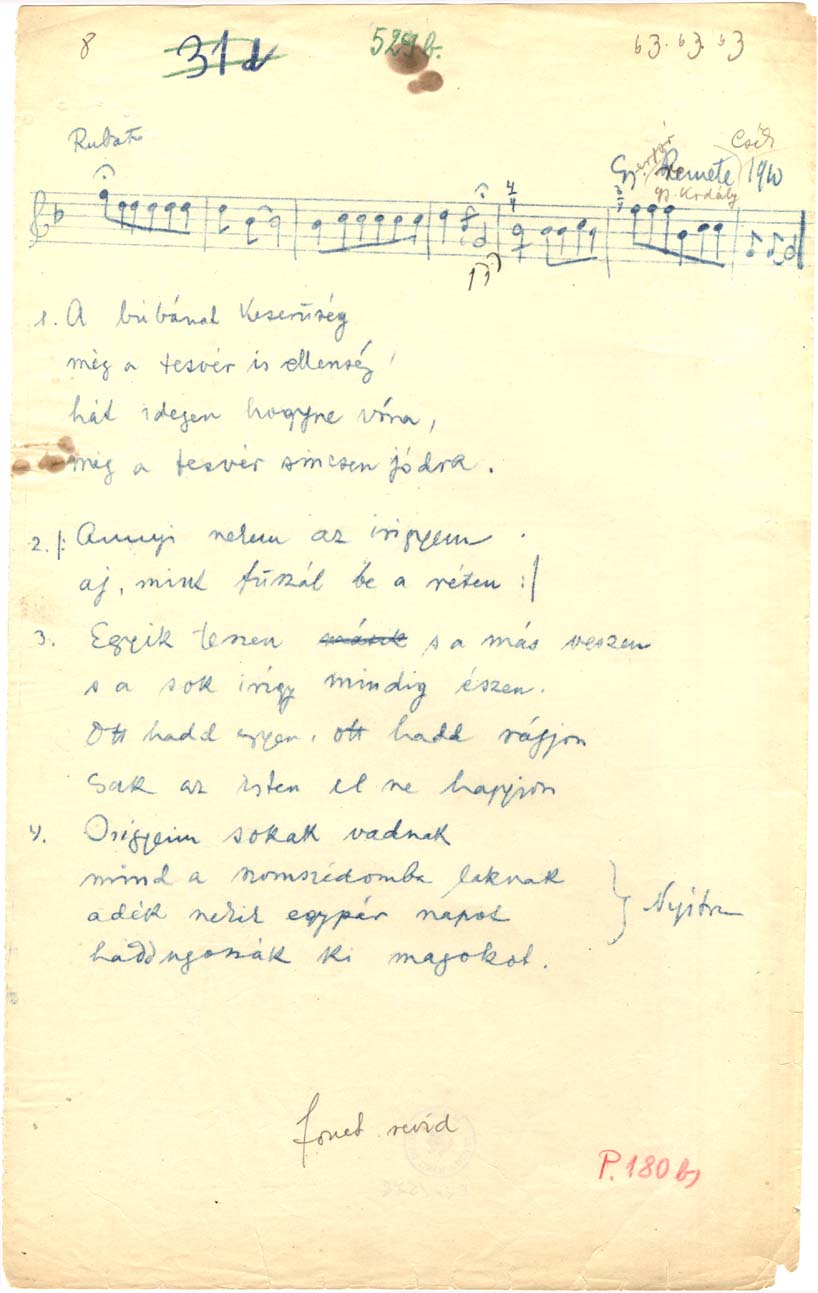 8 31d 529b. 63. 63. 63
Rubato
Csík
Gy. Remete 1910
gy. Kodály
4/4
1. A búbánat Keserűség
még a tesvér is ellenség
hát idegen hogyne vóna,
még a tesvér sincsen jódra.
2. /: Annyi nekem az irigyem
aj, mint fűszál be a réten :/
3. Egyik teszen másik s a más veszen
s a sok irígy mindig észen.
Ott hadd egyen, ott hadd rágjon
Sak az Isten el ne hagyjon
4. Irigyeim sokak vadnak
mind a szomszédomba laknak
adék nekik egypár napot
haddugossák ki magokot.
Nyitra
fonet revid
P. 180 b)